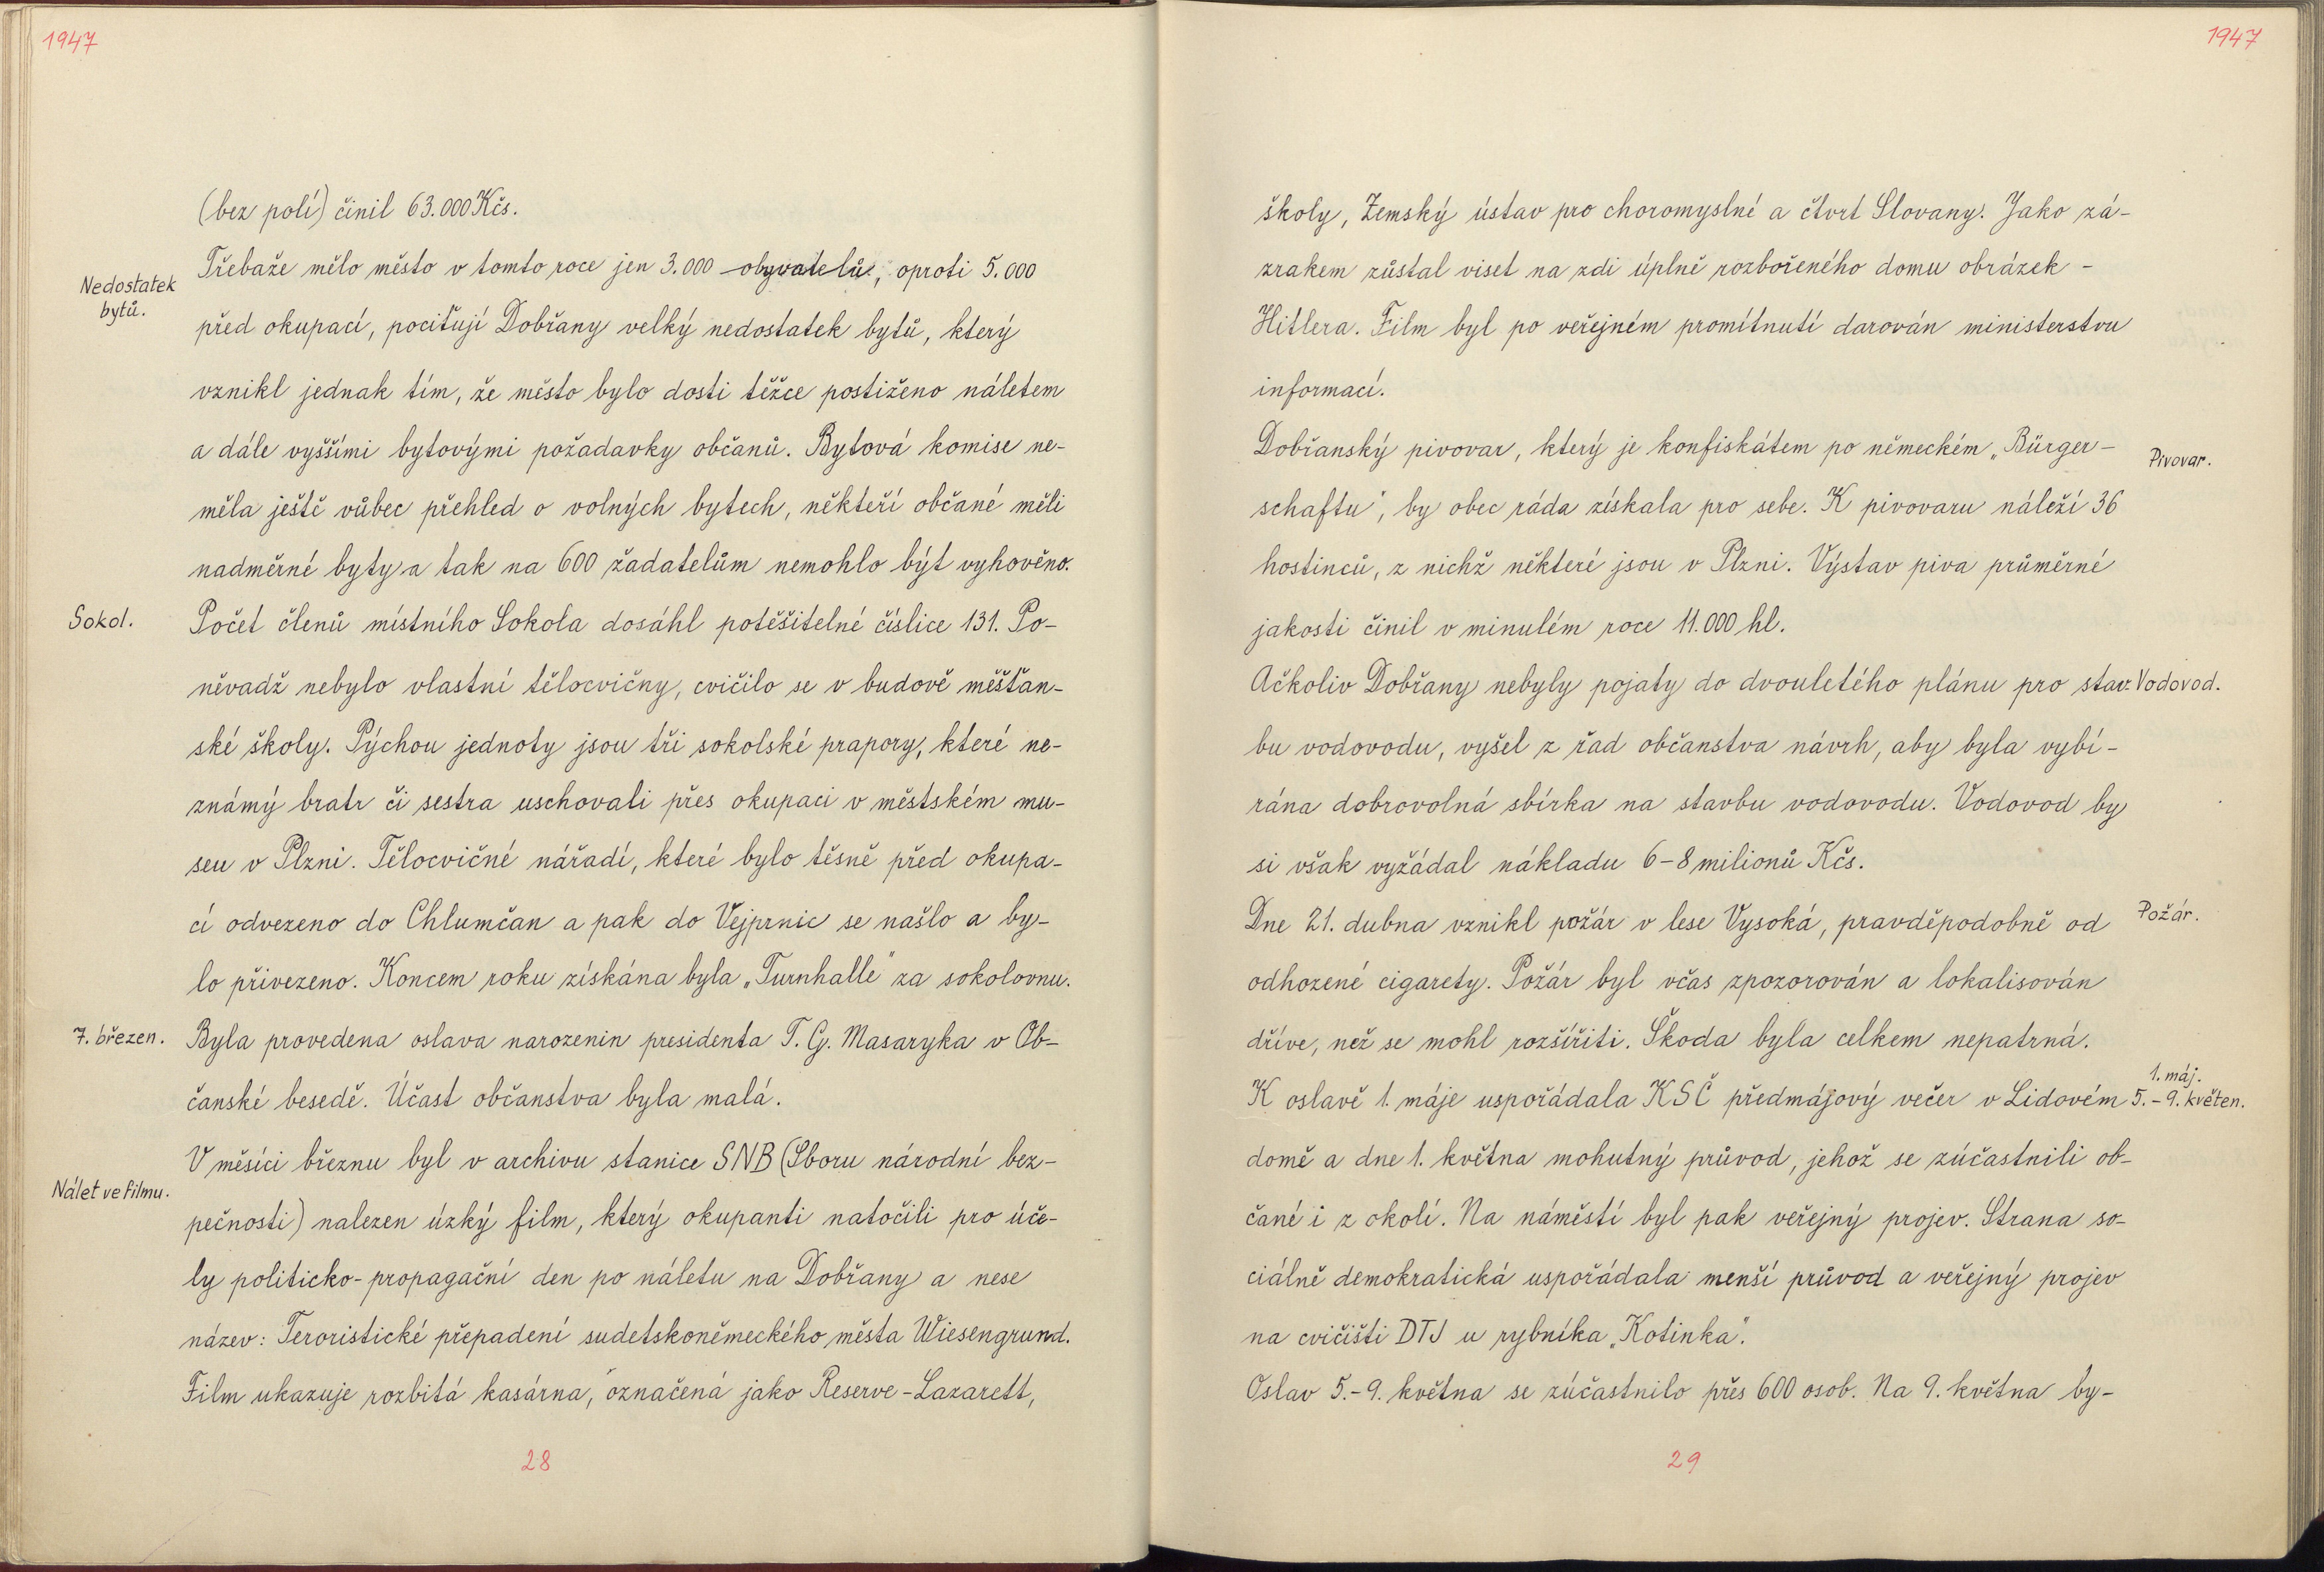 1947
(bez polí) činil 63.000 Kčs.
Nedostatek
bytů.
Třebaže mělo město v tomto roce jen 3.000 obyvatelů, oproti 5.000
před okupací, pociťují Dobřany velký nedostatek bytů, který
vznikl jednak tím, že město bylo dosti těžce postiženo náletem
a dále vyššími bytovými požadavky občanů. Bytová komise ne-
měla ještě vůbec přehled o volných bytech, někteří občané měli
nadměrné byty a tak na 600 žadatelům nemohlo být vyhověno.
Sokol.
Počet členů místního Sokola dosáhl potěšitelné číslice 131. Po-
něvadž nebylo vlastní tělocvičny, cvičilo se v budově měšťan-
ské školy. Pýchou jednoty jsou tři sokolské prapory, které ne-
známý bratr či sestra uschovali přes okupaci v městském mu-
seu v Plzni. Tělocvičné nářadí, které bylo těsně před okupa-
cí odvezeno do Chlumčan a pak do Vejprnic se našlo a by-
lo přivezeno. Koncem roku získána byla „Turnhalle" za sokolovnu.
7. březen.
Byla provedena oslava narozenin presidenta T. G. Masaryka v Ob-
čanské besedě. Účast občanstva byla malá.
V měsíci březnu byl v archivu stanice SNB (Sboru národní bez-
Nálet ve filmu.
pečnosti) nalezen úzký film, který okupanti natočili pro úče-
ly politicko-propagační den po náletu na Dobřany a nese
název: Teroristické přepadení sudetskoněmeckého města Wiesengrund.
Film ukazuje rozbitá kasárna, označená jako Reserve-Lazarett,
28
1947
školy, Zemský ústav pro choromyslné a čtvrť Slovany. Jako zá-
zrakem zůstal viset na zdi úplně rozbořeného domu obrázek -
Hitlera. Film byl po veřejném promítnutí darován ministerstvu
informací.
Dobřanský pivovar, který je konfiskátem po německém „Bürger-
Pivovar.
schaftu", by obec ráda získala pro sebe. K pivovaru náleží 36
hostinců, z nichž některé jsou v Plzni. Výstav piva průměrné
jakosti činil v minulém roce 11.000 hl.
Ačkoliv Dobřany nebyly pojaty do dvouletého plánu pro stav-
Vodovod.
bu vodovodu, vyšel z řad občanstva návrh, aby byla vybí-
rána dobrovolná sbírka na stavbu vodovodu. Vodovod by
si však vyžádal nákladu 6-8 milionů Kčs.
Dne 21. dubna vznikl požár v lese Vysoká, pravděpodobně od
Požár.
odhozené cigarety. Požár byl včas zpozorován a lokalisován
dříve, než se mohl rozšířiti. Škoda byla celkem nepatrná.
1. máj.
K oslavě 1. máje uspořádala KSČ předmájový večer v Lidovém
5.-9. květen.
domě a dne 1. května mohutný průvod, jehož se zúčastnili ob-
čané i z okolí. Na náměstí byl pak veřejný projev. Strana so-
ciálně demokratická uspořádala menší průvod a veřejný projev
na cvičišti DTJ u rybníka „Kotinka".
Oslav 5.-9. května se zúčastnilo přes 600 osob. Na 9. května by-
29